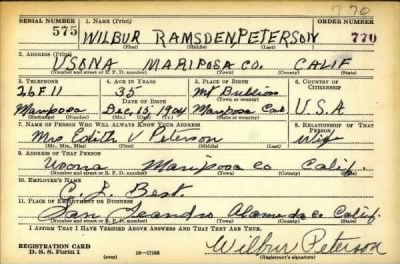 770
SERIAL NUMBER 1. NAME (Print) ORDER NUMBER
575 WILBUR RAMSDEN PETERSON 770
(First) (Middle) (Last)
2. ADDRESS (Print)
USONA MARIPOSA CO. CALIF
(Number and street or R. F. D. number) (Town) (County) (State)
3. TELEPHONE 4. AGE IN YEARS 5. PLACE OF BIRTH 6. COUNTRY OF CITIZENSHIP
26F11 35 Mt Bullion
DATE OF BIRTH (Town or county)
Mariposa Dec. 15, 1904 Mariposa Cal U.S.A
(Exchange) (Number) (Mo.) (Day) (Yr.) (State or country)
7. NAME OF PERSON WHO WILL ALWAYS KNOW YOUR ADDRESS 8. RELATIONSHIP OF THAT PERSON
Mrs Edith V Peterson Wife
(Mr., Mrs., Miss) (First) (Middle) (Last)
9. ADDRESS OF THAT PERSON
Usona Mariposa Co Calif.
(Number and street or R. F. D. number) (Town) (County) (State)
10. EMPLOYER'S NAME
C. L. Best
11. PLACE OF EMPLOYMENT OR BUSINESS
San Leandro Alameda co. Calif.
(Number and street or R. F. D. number) (Town) (County) (State)
I AFFIRM THAT I HAVE VERIFIED ABOVE ANSWERS AND THAT THEY ARE TRUE.
REGISTRATION CARD
D. S. S. Form 1 (over) Wilbur Peterson
(Registrant's signature)